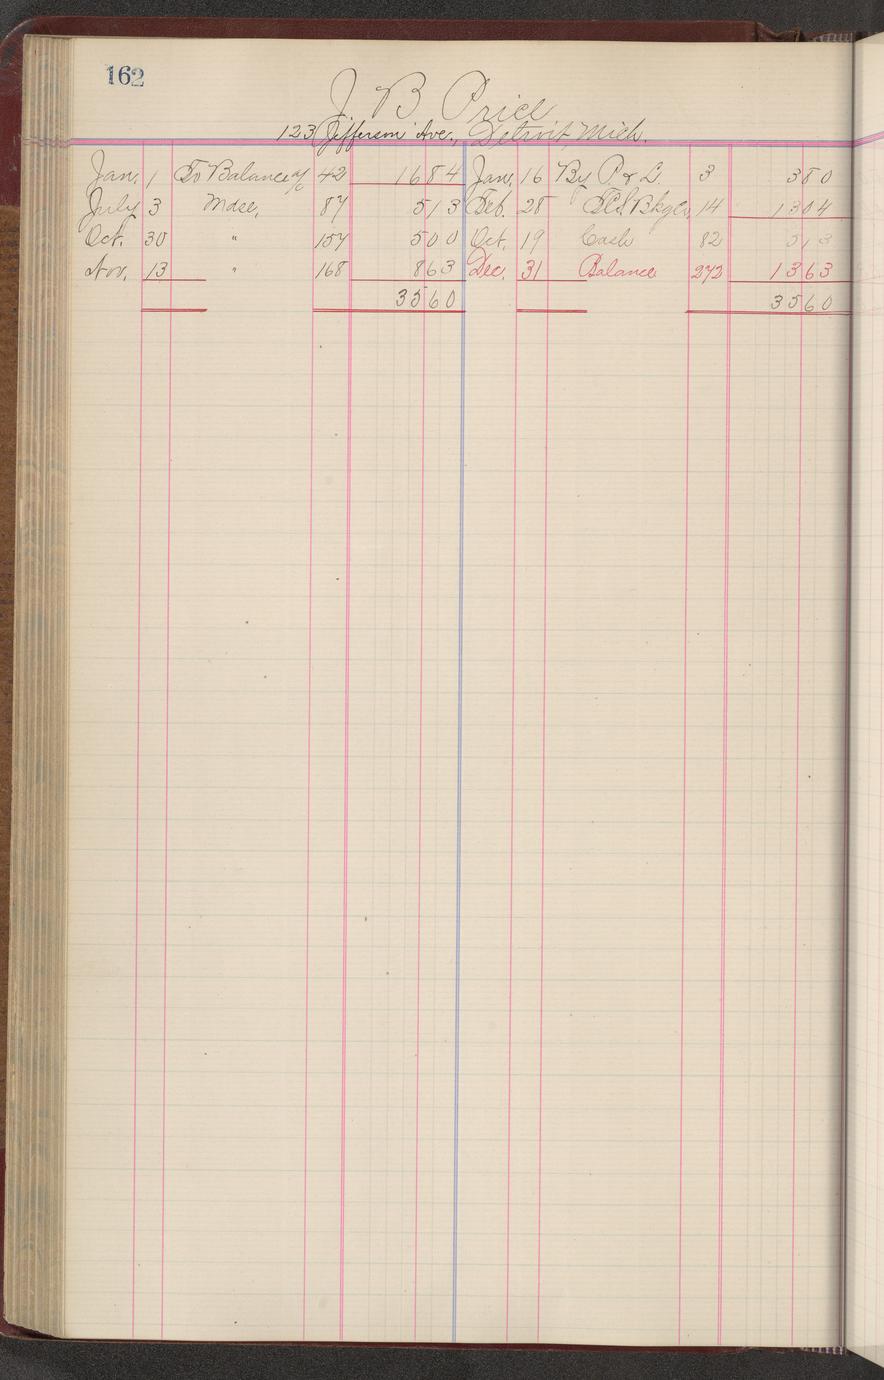 162
J B Price
123 Jefferson Ave., Detroit, Mich.
Jan. 1 To Balance a/c 42 1684 Jan. 16 By P. & L. 3 380
July 3 Mdse. 87 513 Feb. 28 Bkge. 14 1304
Oct. 30 " 157 500 Oct. 19 Cash 82 513
Nov. 13 " 168 863 Dec. 31 Balance 272 1363
3560 3560